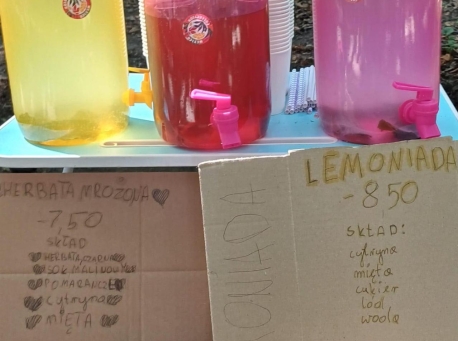 HERBATA MROŻONA
-7,50
SKŁAD
HERBATA CZARNA
SOK MALINOWY
POMARAŃCZE
Cytryna
MIĘTA
LEMONIADA
-8 50
SKŁAD:
cytryna
mięta
cukier
lód
woda
ONIADA